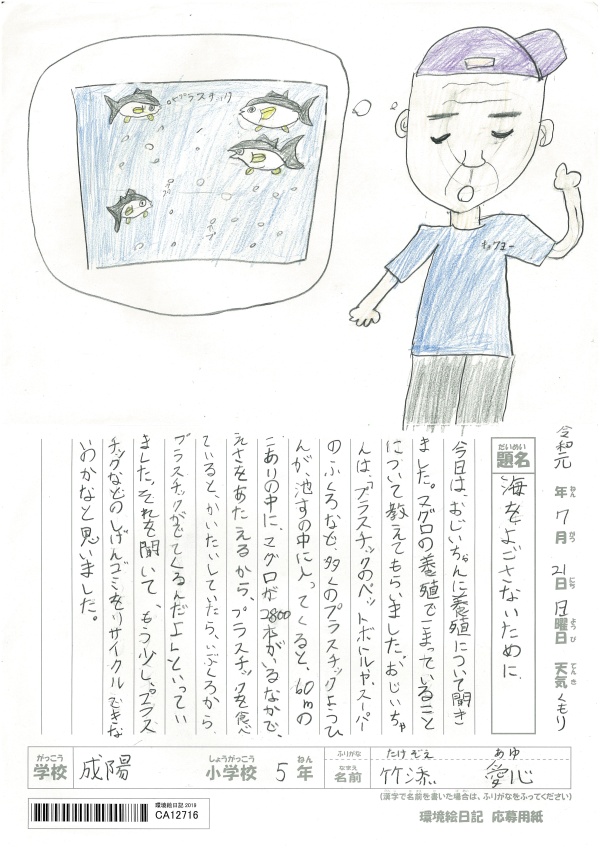 プラスチック
キョクヨー
令和元年ねん7月がつ21日にち日曜日ようび天気てんきくもり
題名だいめい 海をよごさないために
今日は、おじいちゃんに養殖について聞き
ました。マグロの養殖でこまっていること
について教えてもらいました。おじいちゃ
んは、「プラスチックのペットボトルや、スーパー
のふくろなど、多くのプラスチックようひ
んが、池すの中に入ってくると、60mの
こありの中に、マグロが2800本がいるなかで、
えさをあたえるから、プラスチックを食べ
ていると、かいたいしていたら、いぶくろから、
プラスチックがでてくるんだよ」といってい
ました。それを聞いて、もう少し、プラス
チックなどのしげんゴミをリサイクルできな
いのかなと思いました。
がっこう しょうがっこう ねん ふりがな たけぞえ あゆ
学校 成陽 小学校 5年 なまえ 名前 竹添 愛心
(漢字で名前を書いた場合は、ふりがなをふってください)
環境絵日記 2019
CA12716
環境絵日記 応募用紙